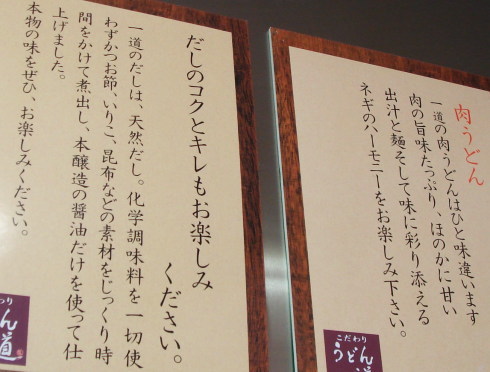 肉うどん
一道の肉うどんはひと味違います
肉の旨味たっぷり、ほのかに甘い
出汁と麺そして味に彩り添える
ネギのハーモニーをお楽しみ下さい。
こだわり
うどん
道
だしのコクとキレもお楽しみ
ください。
一道のだしは、天然だし。化学調味料を一切使
わずかつお節、いりこ、昆布などの素材をじっくり時
間をかけて煮出し、本醸造の醤油だけを使って仕
上げました。
本物の味をぜひ、お楽しみください。
わり
どん
道